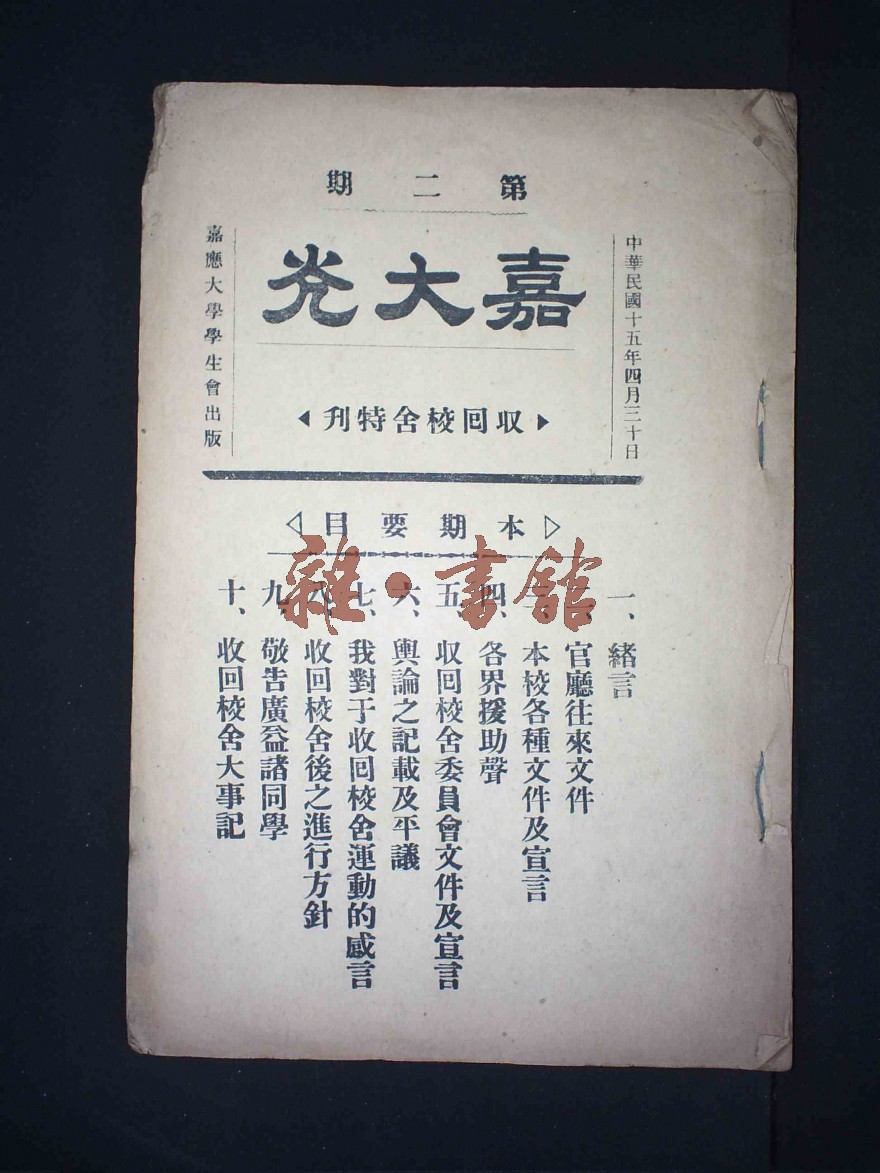 第二期
中華民國十五年四月三十日
嘉大光
嘉應大學學生會出版
收回校舍特刊
本期要目
一、緒言
二、官廳往來文件
三、本校各種文件及宣言
四、各界援助聲
五、収回校舍委員會文件及宣言
六、輿論之記載及平議
七、我對于收回校舍運動的感言
八、收回校舍後之進行方針
九、敬告廣益諸同學
十、收回校舍大事記
雜·書館